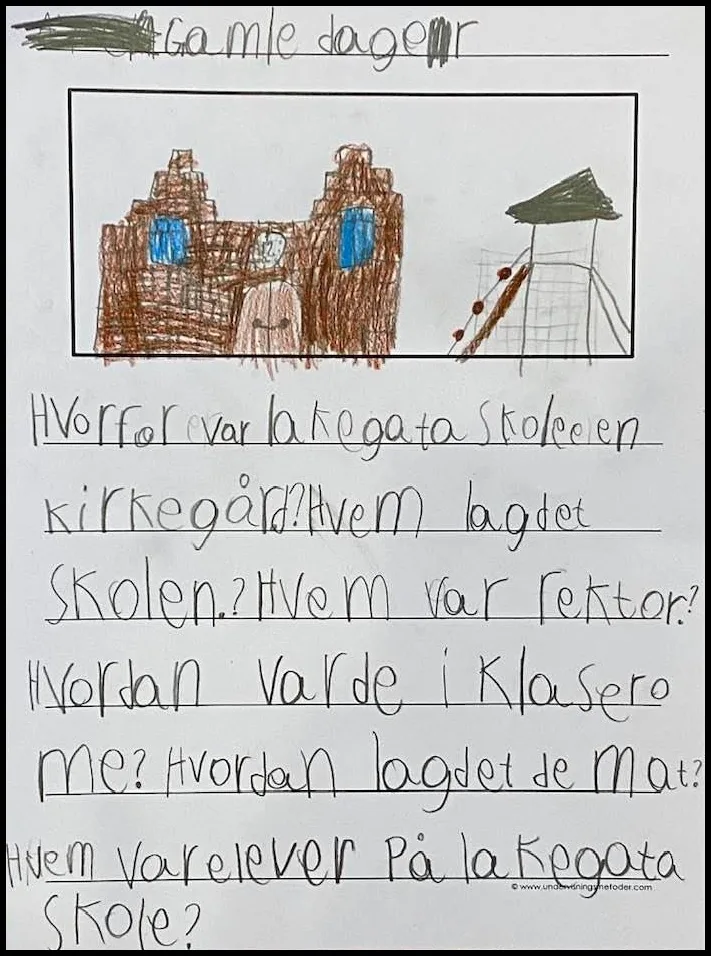 Gamle dager
12
Hvorfor var lakegata skoleen
kirkegård? Hvem lagdet
skolen.? Hvem var rektor.?
Hvordan var de i klasero
me? Hvordan lagdet de mat?
Hvem var elever på lakegata
© www.undervisningsmetoder.com
skole?